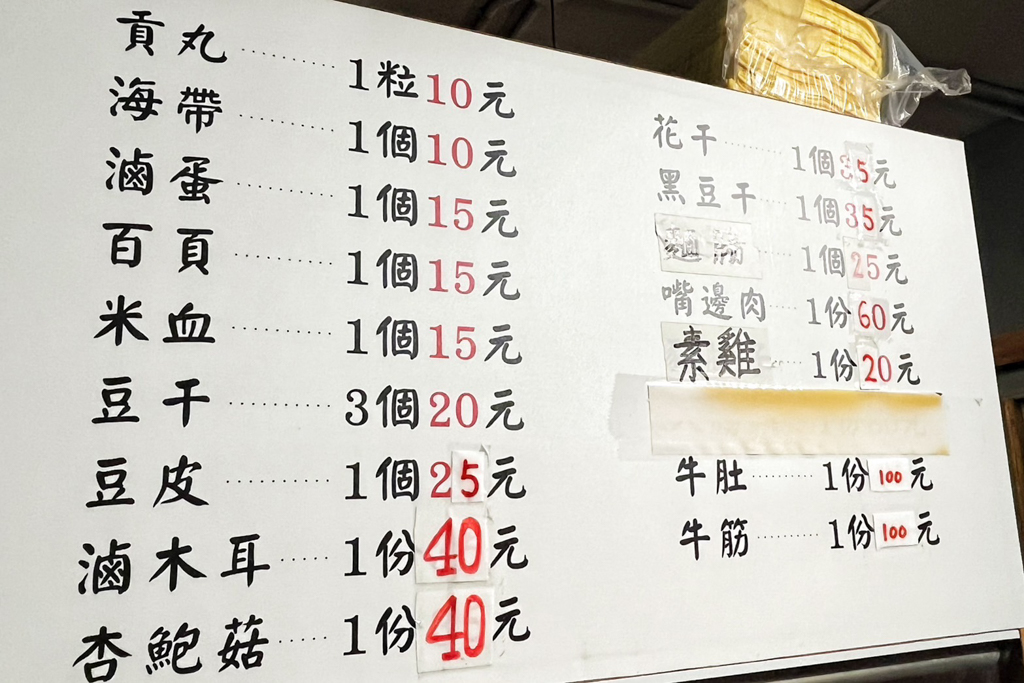 貢丸 1粒10元
海帶 1個10元
滷蛋 1個15元
百頁 1個15元
米血 1個15元
豆干 3個20元
豆皮 1個25元
滷木耳 1份40元
杏鮑菇 1份40元
花干 1個35元
黑豆干 1個35元
1個25元
嘴邊肉 1份60元
素雞 1份20元
牛肚 1份100元
牛筋 1份100元